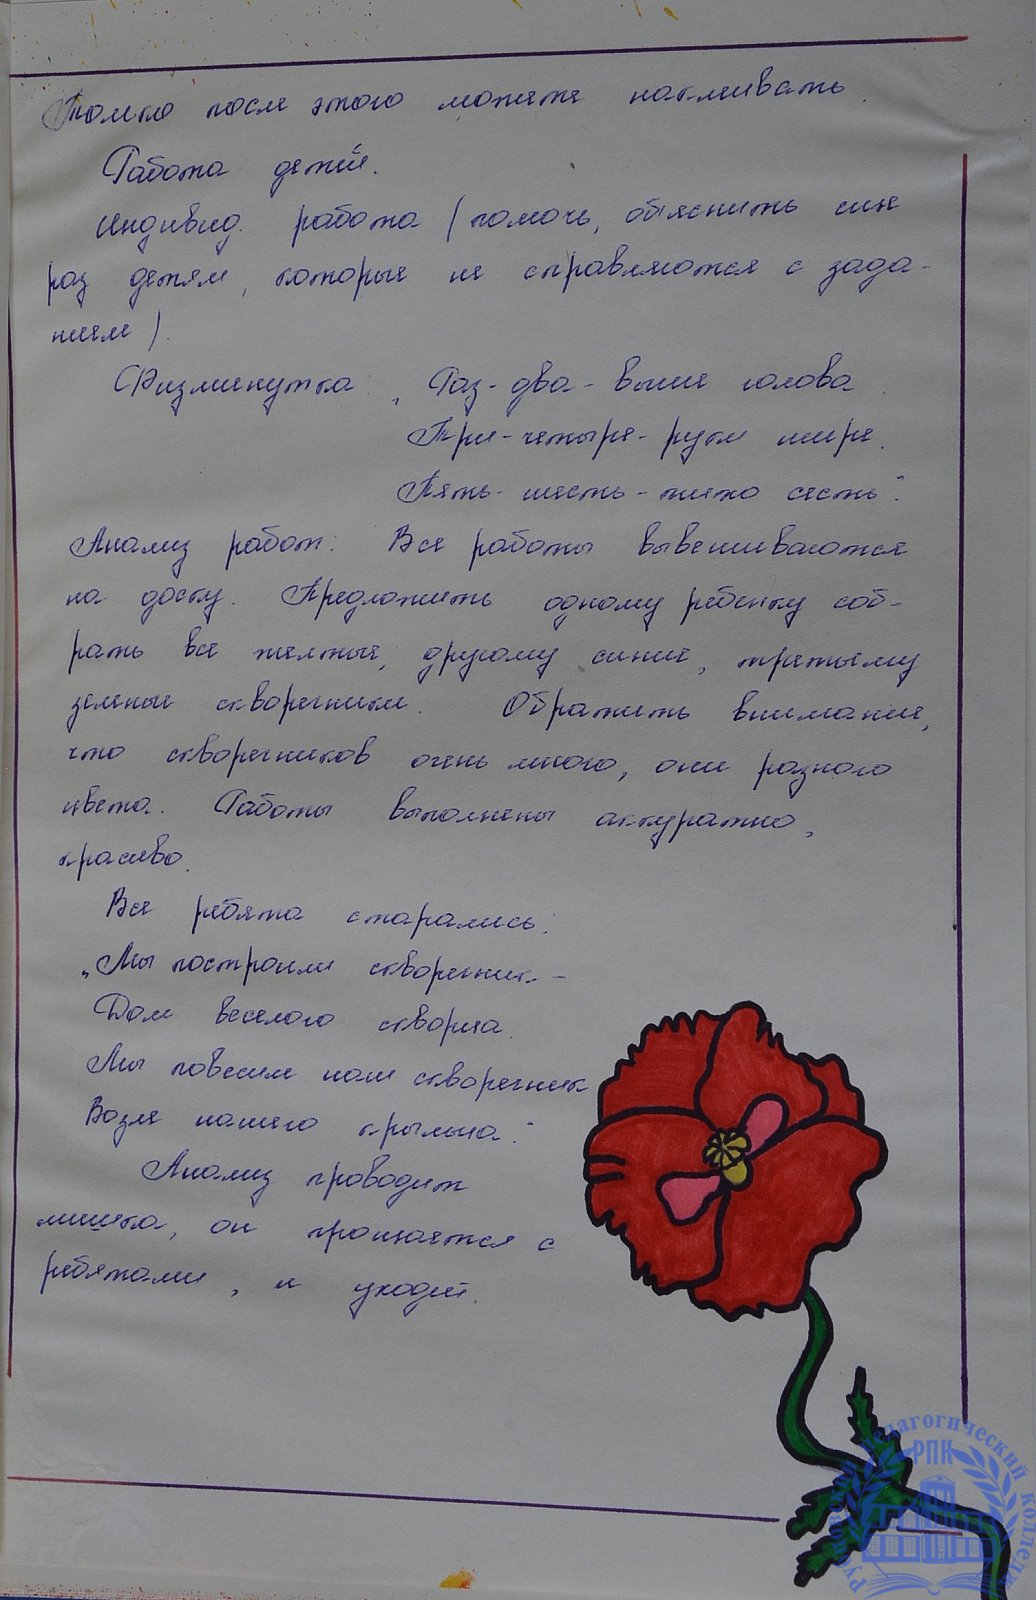 Только после этого можете наклеивать.
Работа детей.
Индивид. работа (помочь, объяснить ещё
раз детям, которые не справляются с зада-
нием).
Физминутка: „Раз-два- выше голова.
Три-четыре- руки шире.
Пять- шесть - тихо сесть".
Анализ работ: Все работы вывешиваются
на доску. Предложить одному ребенку соб-
рать все желтые, другому синие, третьему
зеленые скворечники. Обратить внимание,
что скворечников очень много, они разного
цвета. Работы выполнены аккуратно,
красиво.
Все ребята старались:
„Мы построили скворечник-
Дом веселого скворца.
Мы повесим наш скворечник
Возле нашего крыльца".
Анализ проводит
мишка, он прощается с
ребятами, и уходит.
педагогический колледж
РПК